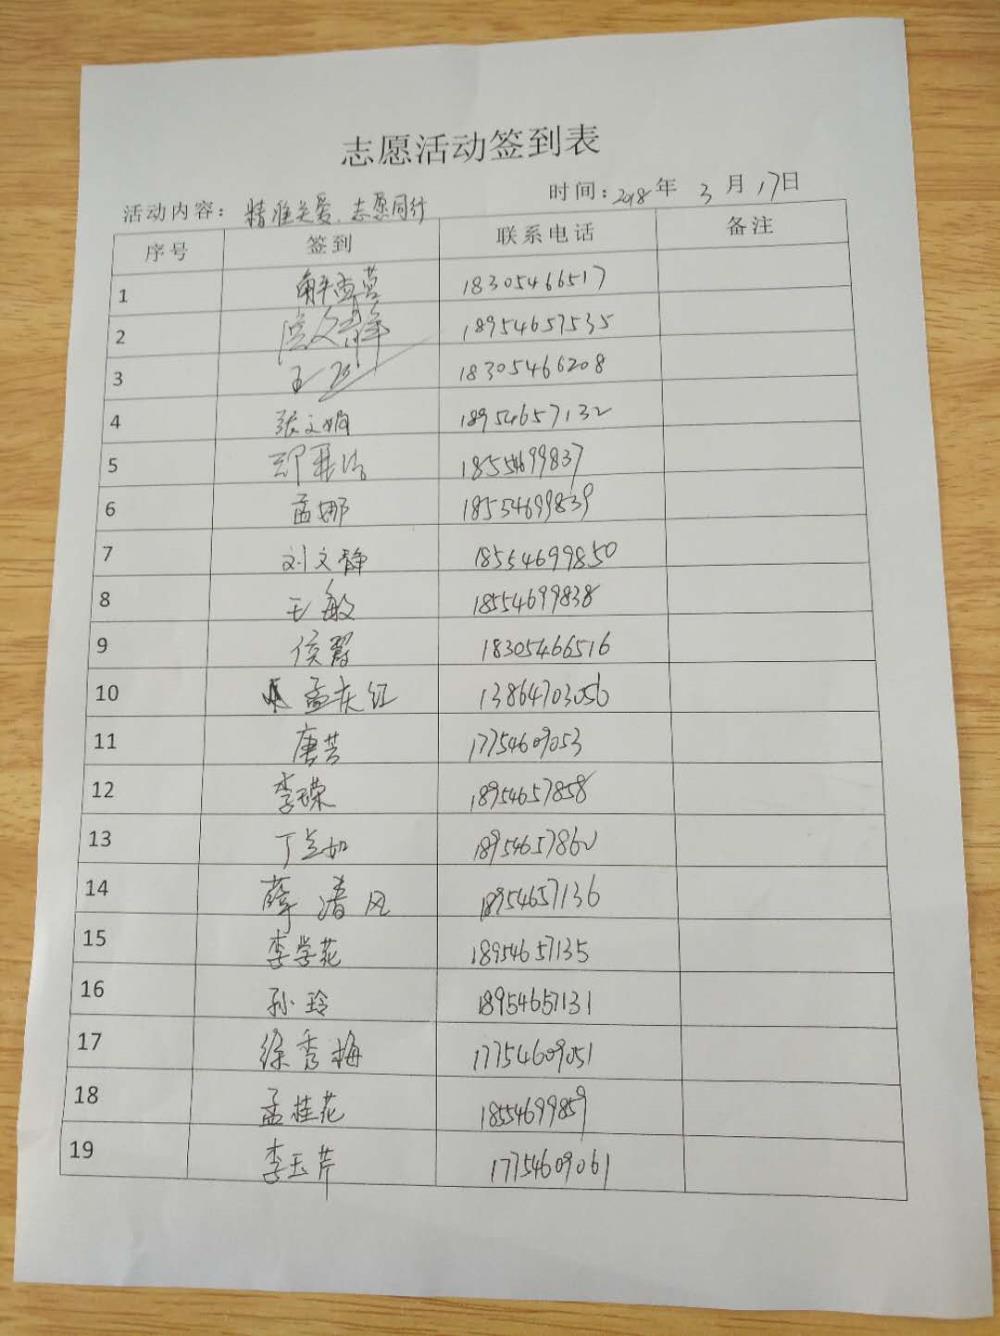 志愿活动签到表
活动内容：精准关爱、志愿同行 时间：2018年3月17日
序号 签到 联系电话 备注
1 解 18305466517
2 18954657535
3 王 18305466208
4 张文娟 18954657132
5 郑 18554699837
6 孟娜 18554699839
7 刘文静 18554699850
8 王敏 18554699838
9 侯翠 18305466516
10 孟庆红 13864703056
11 唐芸 17754609053
12 李荣 18954657858
13 丁兰如 18954657862
14 薛清风 18954657136
15 李学花 18954657135
16 孙玲 18954657131
17 徐秀梅 17754609051
18 孟桂花 18554699859
19 李玉芹 17754609061